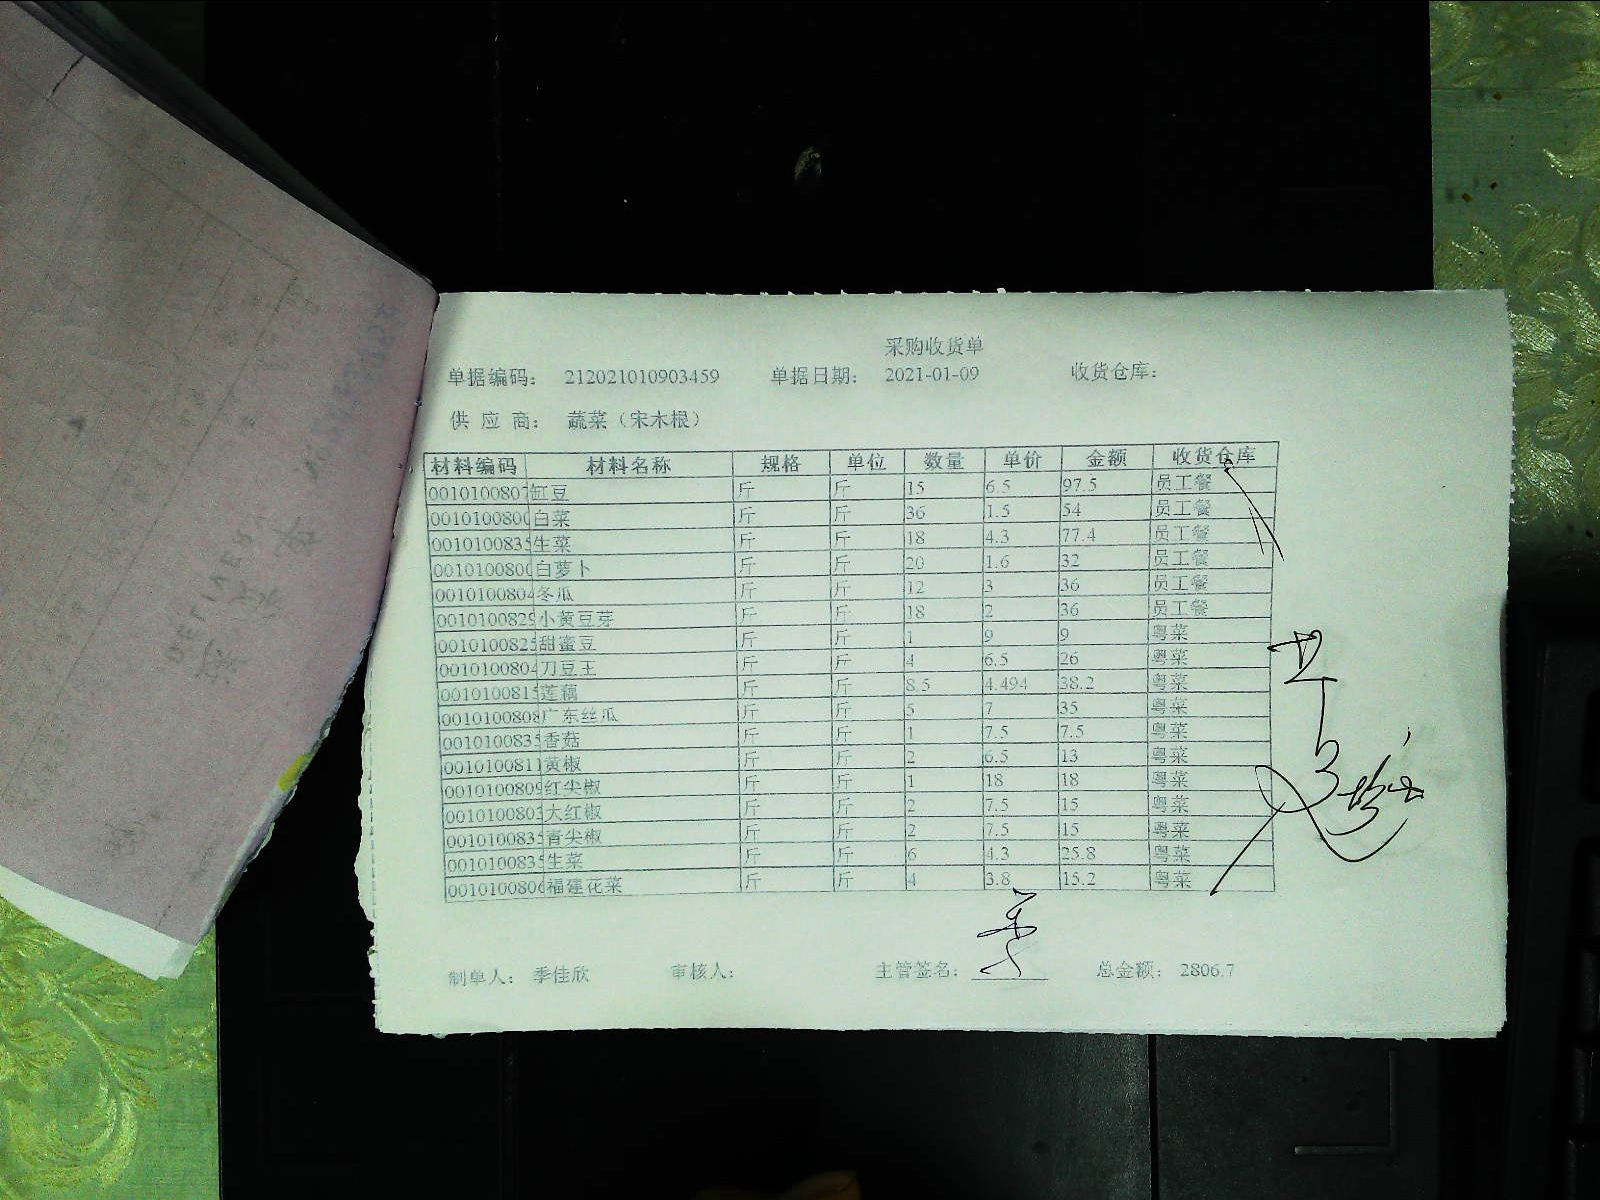 采购收货单
单据编码： 212021010903459 单据日期： 2021-01-09 收货仓库：
供 应 商： 蔬菜（宋木根）
材料编码 材料名称 规格 单位 数量 单价 金额 收货仓库
0010100807 缸豆 斤 斤 15 6.5 97.5 员工餐
001010080 白菜 斤 斤 36 1.5 54 员工餐
001010083 生菜 斤 斤 18 4.3 77.4 员工餐
001010080 白萝卜 斤 斤 20 1.6 32 员工餐
001010080 冬瓜 斤 斤 12 3 36 员工餐
001010082 小黄豆芽 斤 斤 18 2 36 员工餐
001010082 甜蜜豆 斤 斤 1 9 9 粤菜
001010080 刀豆王 斤 斤 4 6.5 26 粤菜
001010081 莲藕 斤 斤 8.5 4.494 38.2 粤菜
001010080 广东丝瓜 斤 斤 5 7 35 粤菜
001010083 香菇 斤 斤 1 7.5 7.5 粤菜
001010081 黄椒 斤 斤 2 6.5 13 粤菜
001010080 红尖椒 斤 斤 1 18 18 粤菜
001010080 大红椒 斤 斤 2 7.5 15 粤菜
001010083 青尖椒 斤 斤 2 7.5 15 粤菜
001010083 生菜 斤 斤 6 4.3 25.8 粤菜
001010080 福建花菜 斤 斤 4 3.8 15.2 粤菜
制单人： 季佳欣 审核人： 主管签名： 总金额： 2806.7